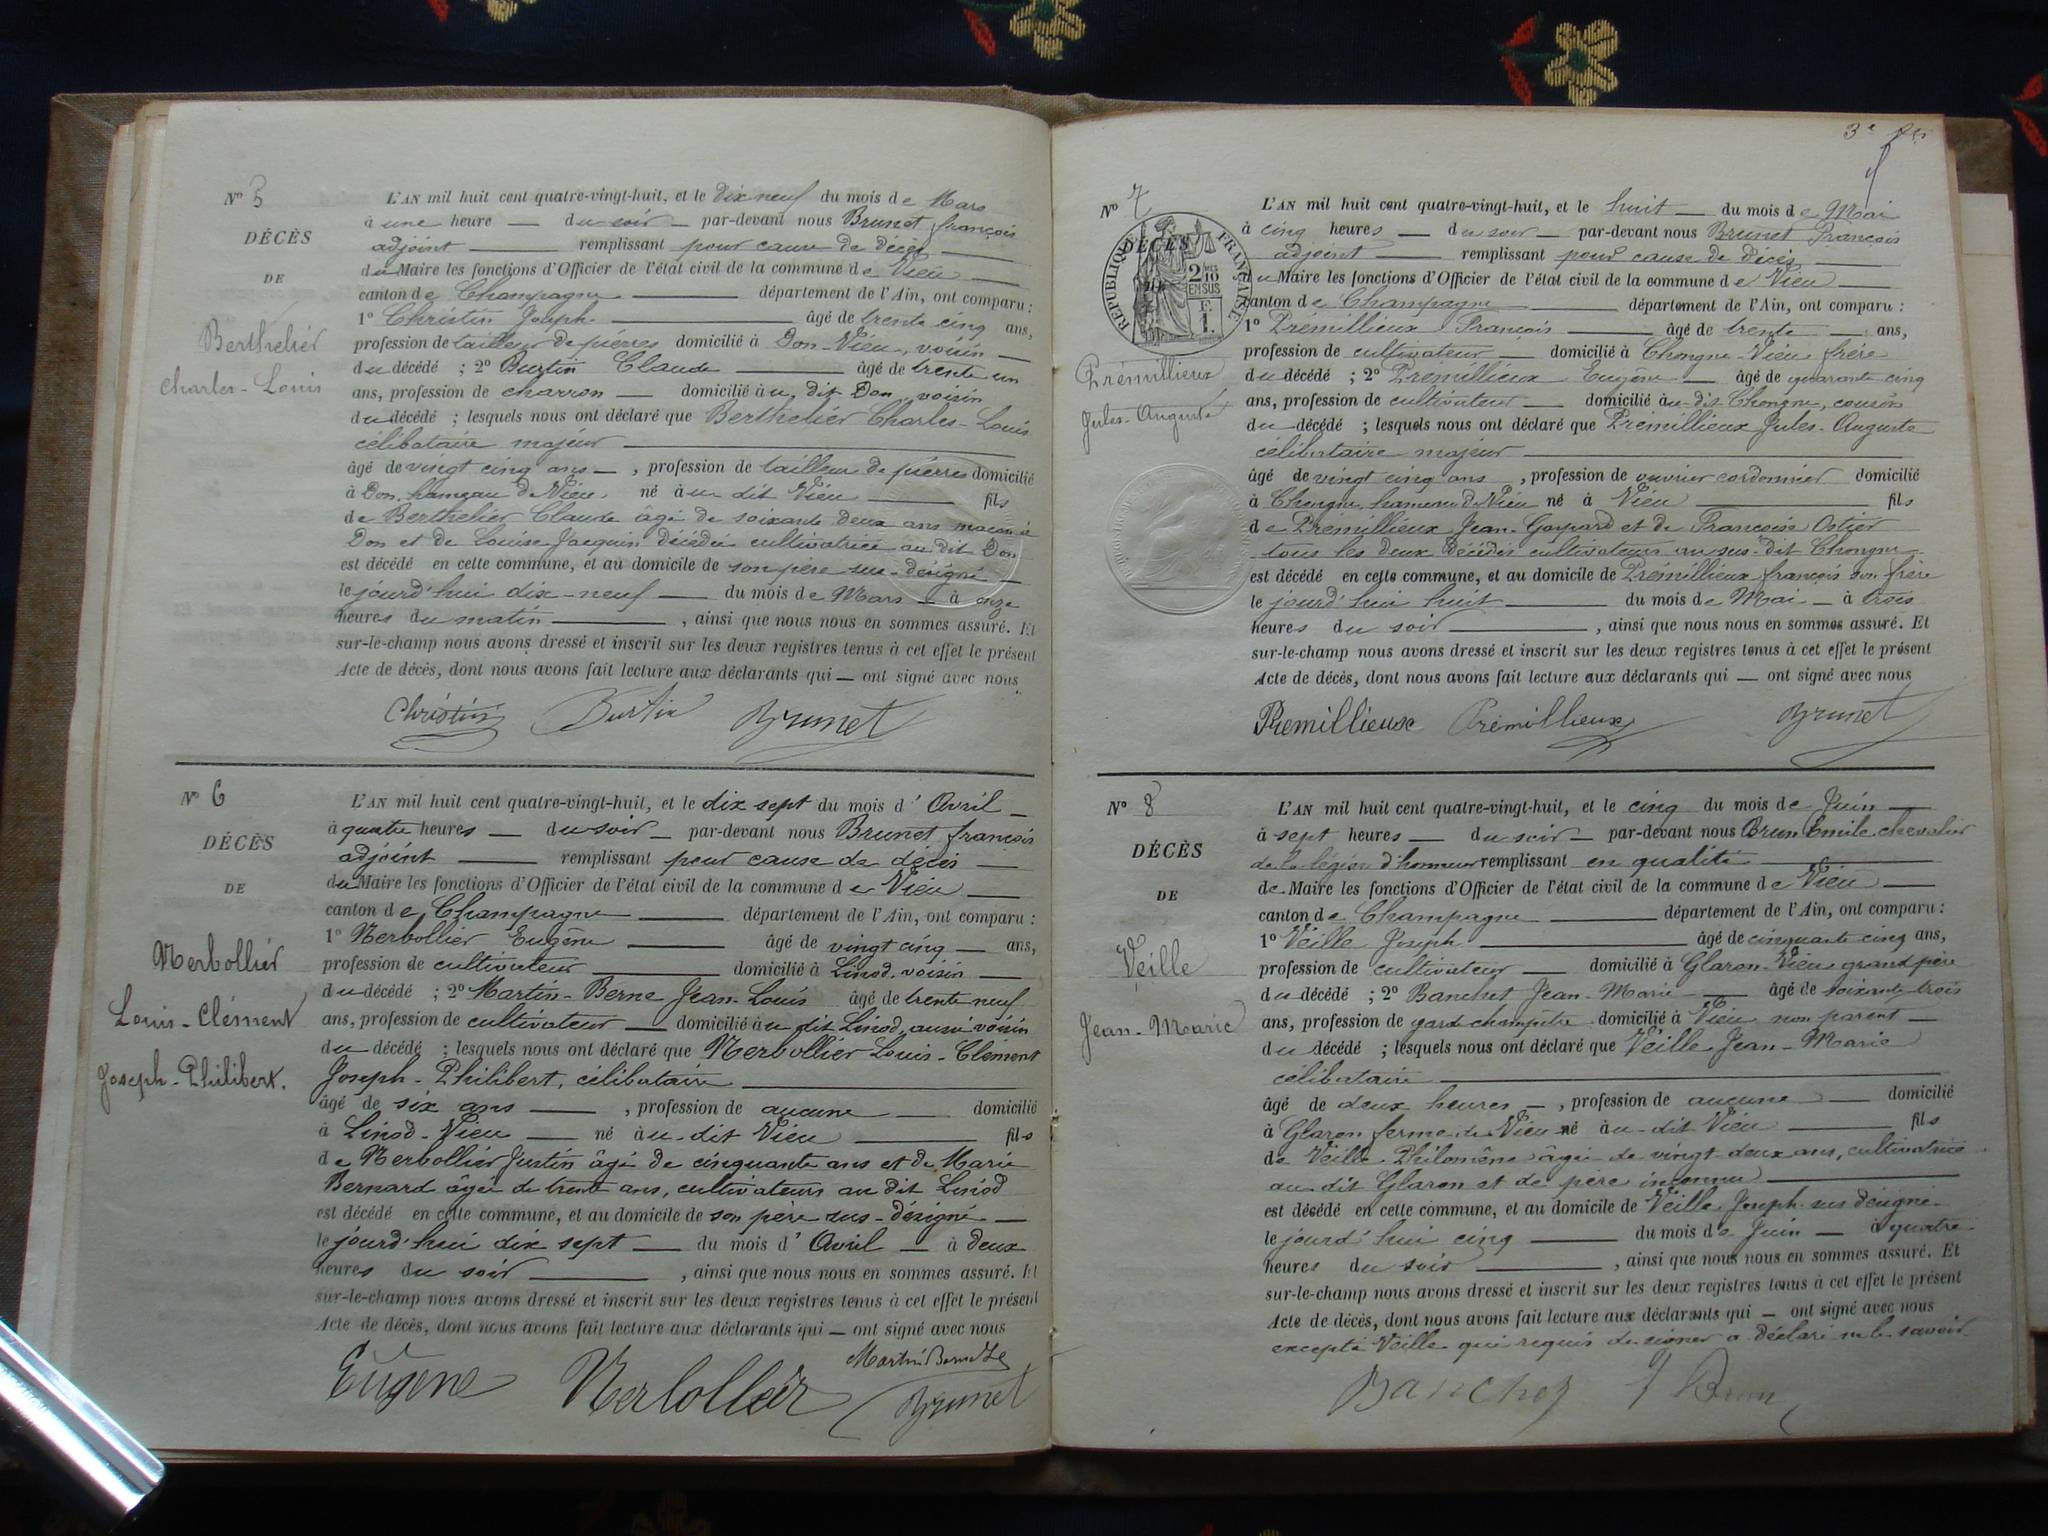 Nº 5
DÉCÈS
DE
Berthelier
Charles-Louis
L'AN mil huit cent quatre-vingt-huit, et le dix neuf du mois de Mars
à une heure du soir par-devant nous Brunet françois
adjoint remplissant pour cause de décès
du Maire les fonctions d'Officier de l'état civil de la commune de Vieu
canton de Champagne département de l'Ain, ont comparu :
1º Christin Joseph âgé de trente cinq ans,
profession de tailleur de pierres domicilié à Don-Vieu, voisin
du décédé ; 2º Burtin Claude âgé de trente un
ans, profession de charron domicilié au dit Don, voisin
du décédé ; lesquels nous ont déclaré que Berthelier Charles-Louis
célibataire majeur
âgé de vingt cinq ans, profession de tailleur de pierres domicilié
à Don, hameau de Vieu né au dit Vieu fils
de Berthelier Claude âgé de soixante deux ans maçon à
Don et de Louise Jacquin décédée cultivatrice au dit Don
est décédé en cette commune, et au domicile de son père sus-désigné
le jourd'hui dix-neuf du mois de Mars à onze
heures du matin, ainsi que nous nous en sommes assuré. Et
sur-le-champ nous avons dressé et inscrit sur les deux registres tenus à cet effet le présent
Acte de décès, dont nous avons fait lecture aux déclarants qui — ont signé avec nous
Christin Burtin Brunet
Nº 6
DÉCÈS
DE
Merbollier
Louis-Clément
Joseph-Philibert.
L'AN mil huit cent quatre-vingt-huit, et le dix sept du mois d'Avril
à quatre heures du soir par-devant nous Brunet françois
adjoint remplissant pour cause de décès
du Maire les fonctions d'Officier de l'état civil de la commune de Vieu
canton de Champagne département de l'Ain, ont comparu :
1º Nerbollier Eugène âgé de vingt cinq ans,
profession de cultivateur domicilié à Linod, voisin
du décédé ; 2º Martin-Berne Jean-Louis âgé de trente neuf
ans, profession de cultivateur domicilié au dit Linod, aussi voisin
du décédé ; lesquels nous ont déclaré que Nerbollier Louis-Clément
Joseph-Philibert, célibataire
âgé de six ans, profession de aucune domicilié
à Linod-Vieu né au dit Vieu fils
de Nerbollier Justin âgé de cinquante ans et de Marie
Bernard âgée de trente ans, cultivateurs au dit Linod
est décédé en cette commune, et au domicile de son père sus-désigné
le jourd'hui dix sept du mois d'Avril à deux
heures du soir, ainsi que nous nous en sommes assuré. Et
sur-le-champ nous avons dressé et inscrit sur les deux registres tenus à cet effet le présent
Acte de décès, dont nous avons fait lecture aux déclarants qui — ont signé avec nous
Eugène Nerbollier Martin Berne Brunet
3e
Nº 7
DÉCÈS
DE
RÉPUBLIQUE FRANÇAISE
2 10 EN SUS
F. 1.
Prémillieux
Jules-Auguste
L'AN mil huit cent quatre-vingt-huit, et le huit du mois de Mai
à cinq heures du soir par-devant nous Brunet François
adjoint remplissant pour cause de décès
du Maire les fonctions d'Officier de l'état civil de la commune de Vieu
canton de Champagne département de l'Ain, ont comparu :
1º Prémillieux François âgé de trente ans,
profession de cultivateur domicilié à Chongne-Vieu frère
du décédé ; 2º Premillieux Eugène âgé de quarante cinq
ans, profession de cultivateur domicilié au dit Chongne, cousin
du décédé ; lesquels nous ont déclaré que Prémillieux Jules-Auguste
célibataire majeur
âgé de vingt cinq ans, profession de ouvrier cordonnier domicilié
à Chongne, hameau de Vieu né à Vieu fils
de Premillieux Jean-Gaspard et de François Ostier
tous les deux décédés cultivateurs au sus-dit Chongne
est décédé en cette commune, et au domicile de Prémillieux françois son frère
le jourd'hui huit du mois de Mai à trois
heures du soir, ainsi que nous nous en sommes assuré. Et
sur-le-champ nous avons dressé et inscrit sur les deux registres tenus à cet effet le présent
Acte de décès, dont nous avons fait lecture aux déclarants qui — ont signé avec nous
Premillieux Prémillieux Brunet
Nº 8
DÉCÈS
DE
Veille
Jean-Marie
L'AN mil huit cent quatre-vingt-huit, et le cinq du mois de Juin
à sept heures du soir par-devant nous Brun Emile chevalier
de la légion d'honneur remplissant en qualité
de Maire les fonctions d'Officier de l'état civil de la commune de Vieu
canton de Champagne département de l'Ain, ont comparu :
1º Veille Joseph âgé de cinquante cinq ans,
profession de cultivateur domicilié à Glaron-Vieu grand père
du décédé ; 2º Banchet Jean-Marie âgé de soixante trois
ans, profession de garde champêtre domicilié à Vieu non parent
du décédé ; lesquels nous ont déclaré que Veille Jean-Marie
célibataire
âgé de deux heures, profession de aucune domicilié
à Glaron ferme de Vieu né au dit Vieu fils
de Veille Philomène âgée de vingt deux ans, cultivatrice
au dit Glaron et de père inconnu
est décédé en cette commune, et au domicile de Veille Joseph sus désigné
le jourd'hui cinq du mois de Juin à quatre
heures du soir, ainsi que nous nous en sommes assuré. Et
sur-le-champ nous avons dressé et inscrit sur les deux registres tenus à cet effet le présent
Acte de décès, dont nous avons fait lecture aux déclarants qui — ont signé avec nous
excepté Veille qui requis de signer a déclaré ne le savoir
Banchet Brun